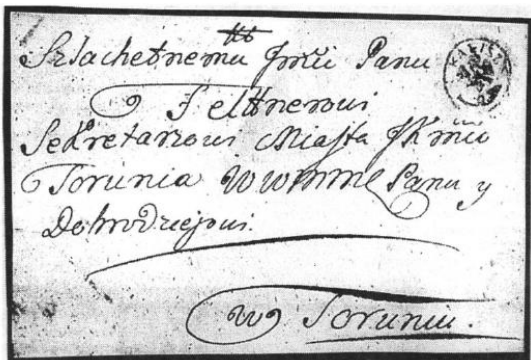 Szlachetnemu Jmći Panu
Feltnerowi
Sekretarzowi Miasta JKmći
Torunia Panu y
Dobrodziejowi.
w Toruniu.